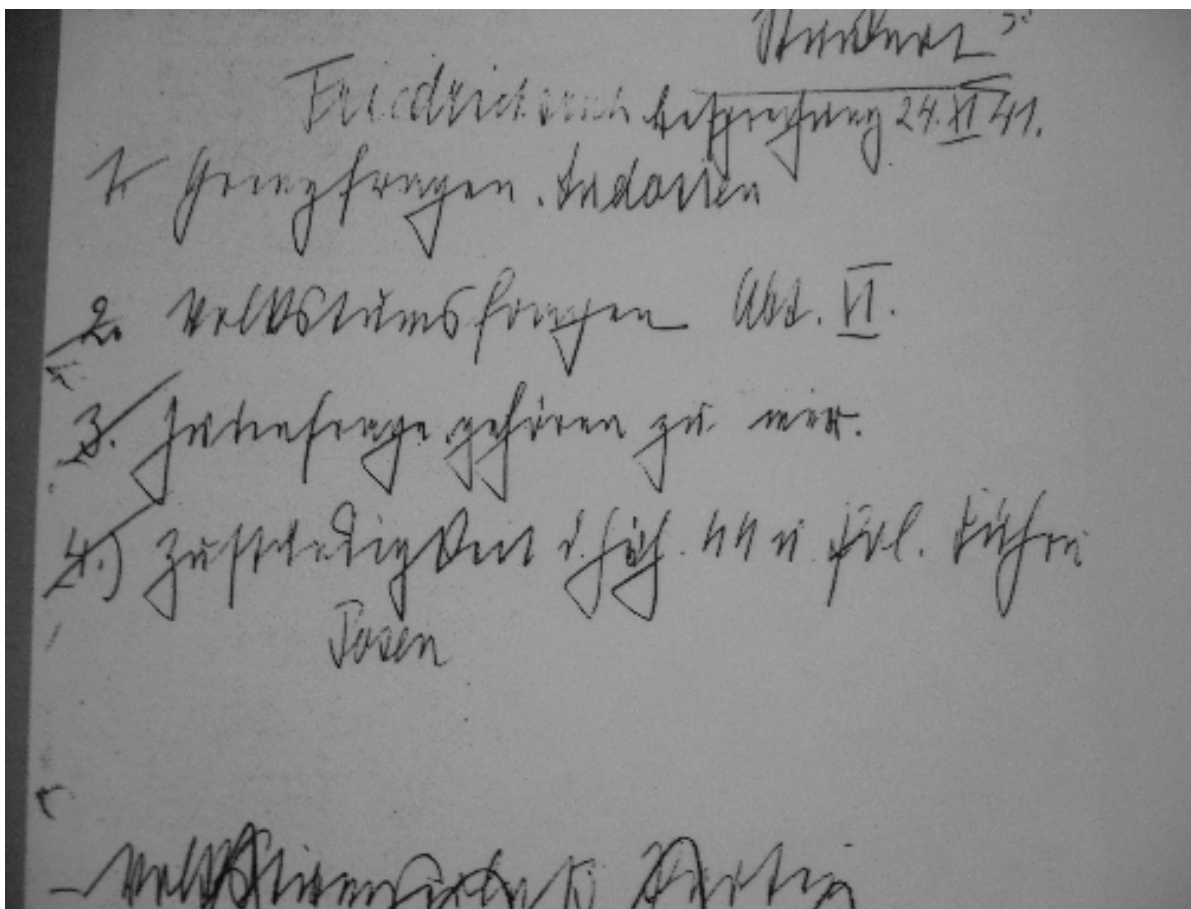 Stuckart
Friedrichsruh besprechung 24.XI 41.
1. Grenzfragen.
2. Volkstumsfragen Abt. VI.
3. Judenfrage gehören zu mir.
4.) Zuständigkeit d. Höh. SS u. Pol. Führer
Posen